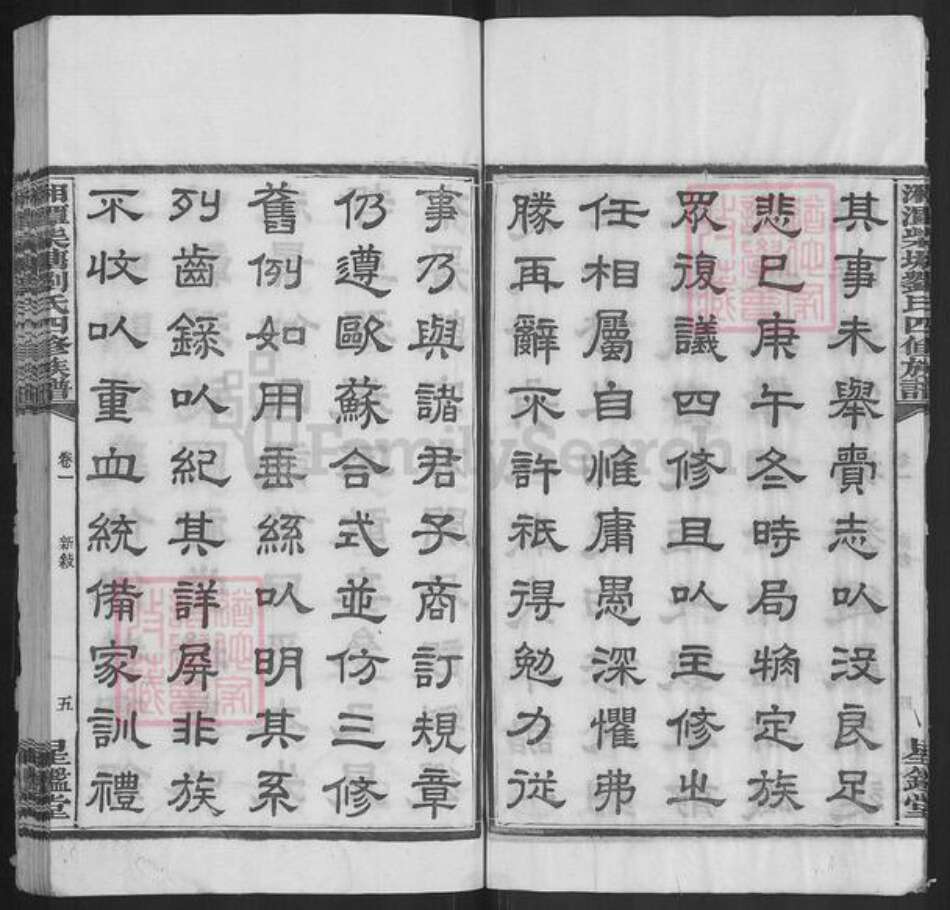 其事未舉賷志以沒良足
悲已庚午冬時局犕定族
眾復議四修且以主修㞢
任相屬自惟庸愚深懼弗
勝再辭不許祇得勉力從
事乃與諸君子商訂規章
仍遵歐蘇合式並仿三修
舊例如用垂絲以明其系
列齒錄以紀其詳屏非族
不收以重血統備家訓禮
湘潭 劉氏四修族譜
卷一
新敍
五
星鑑堂
FamilySearch